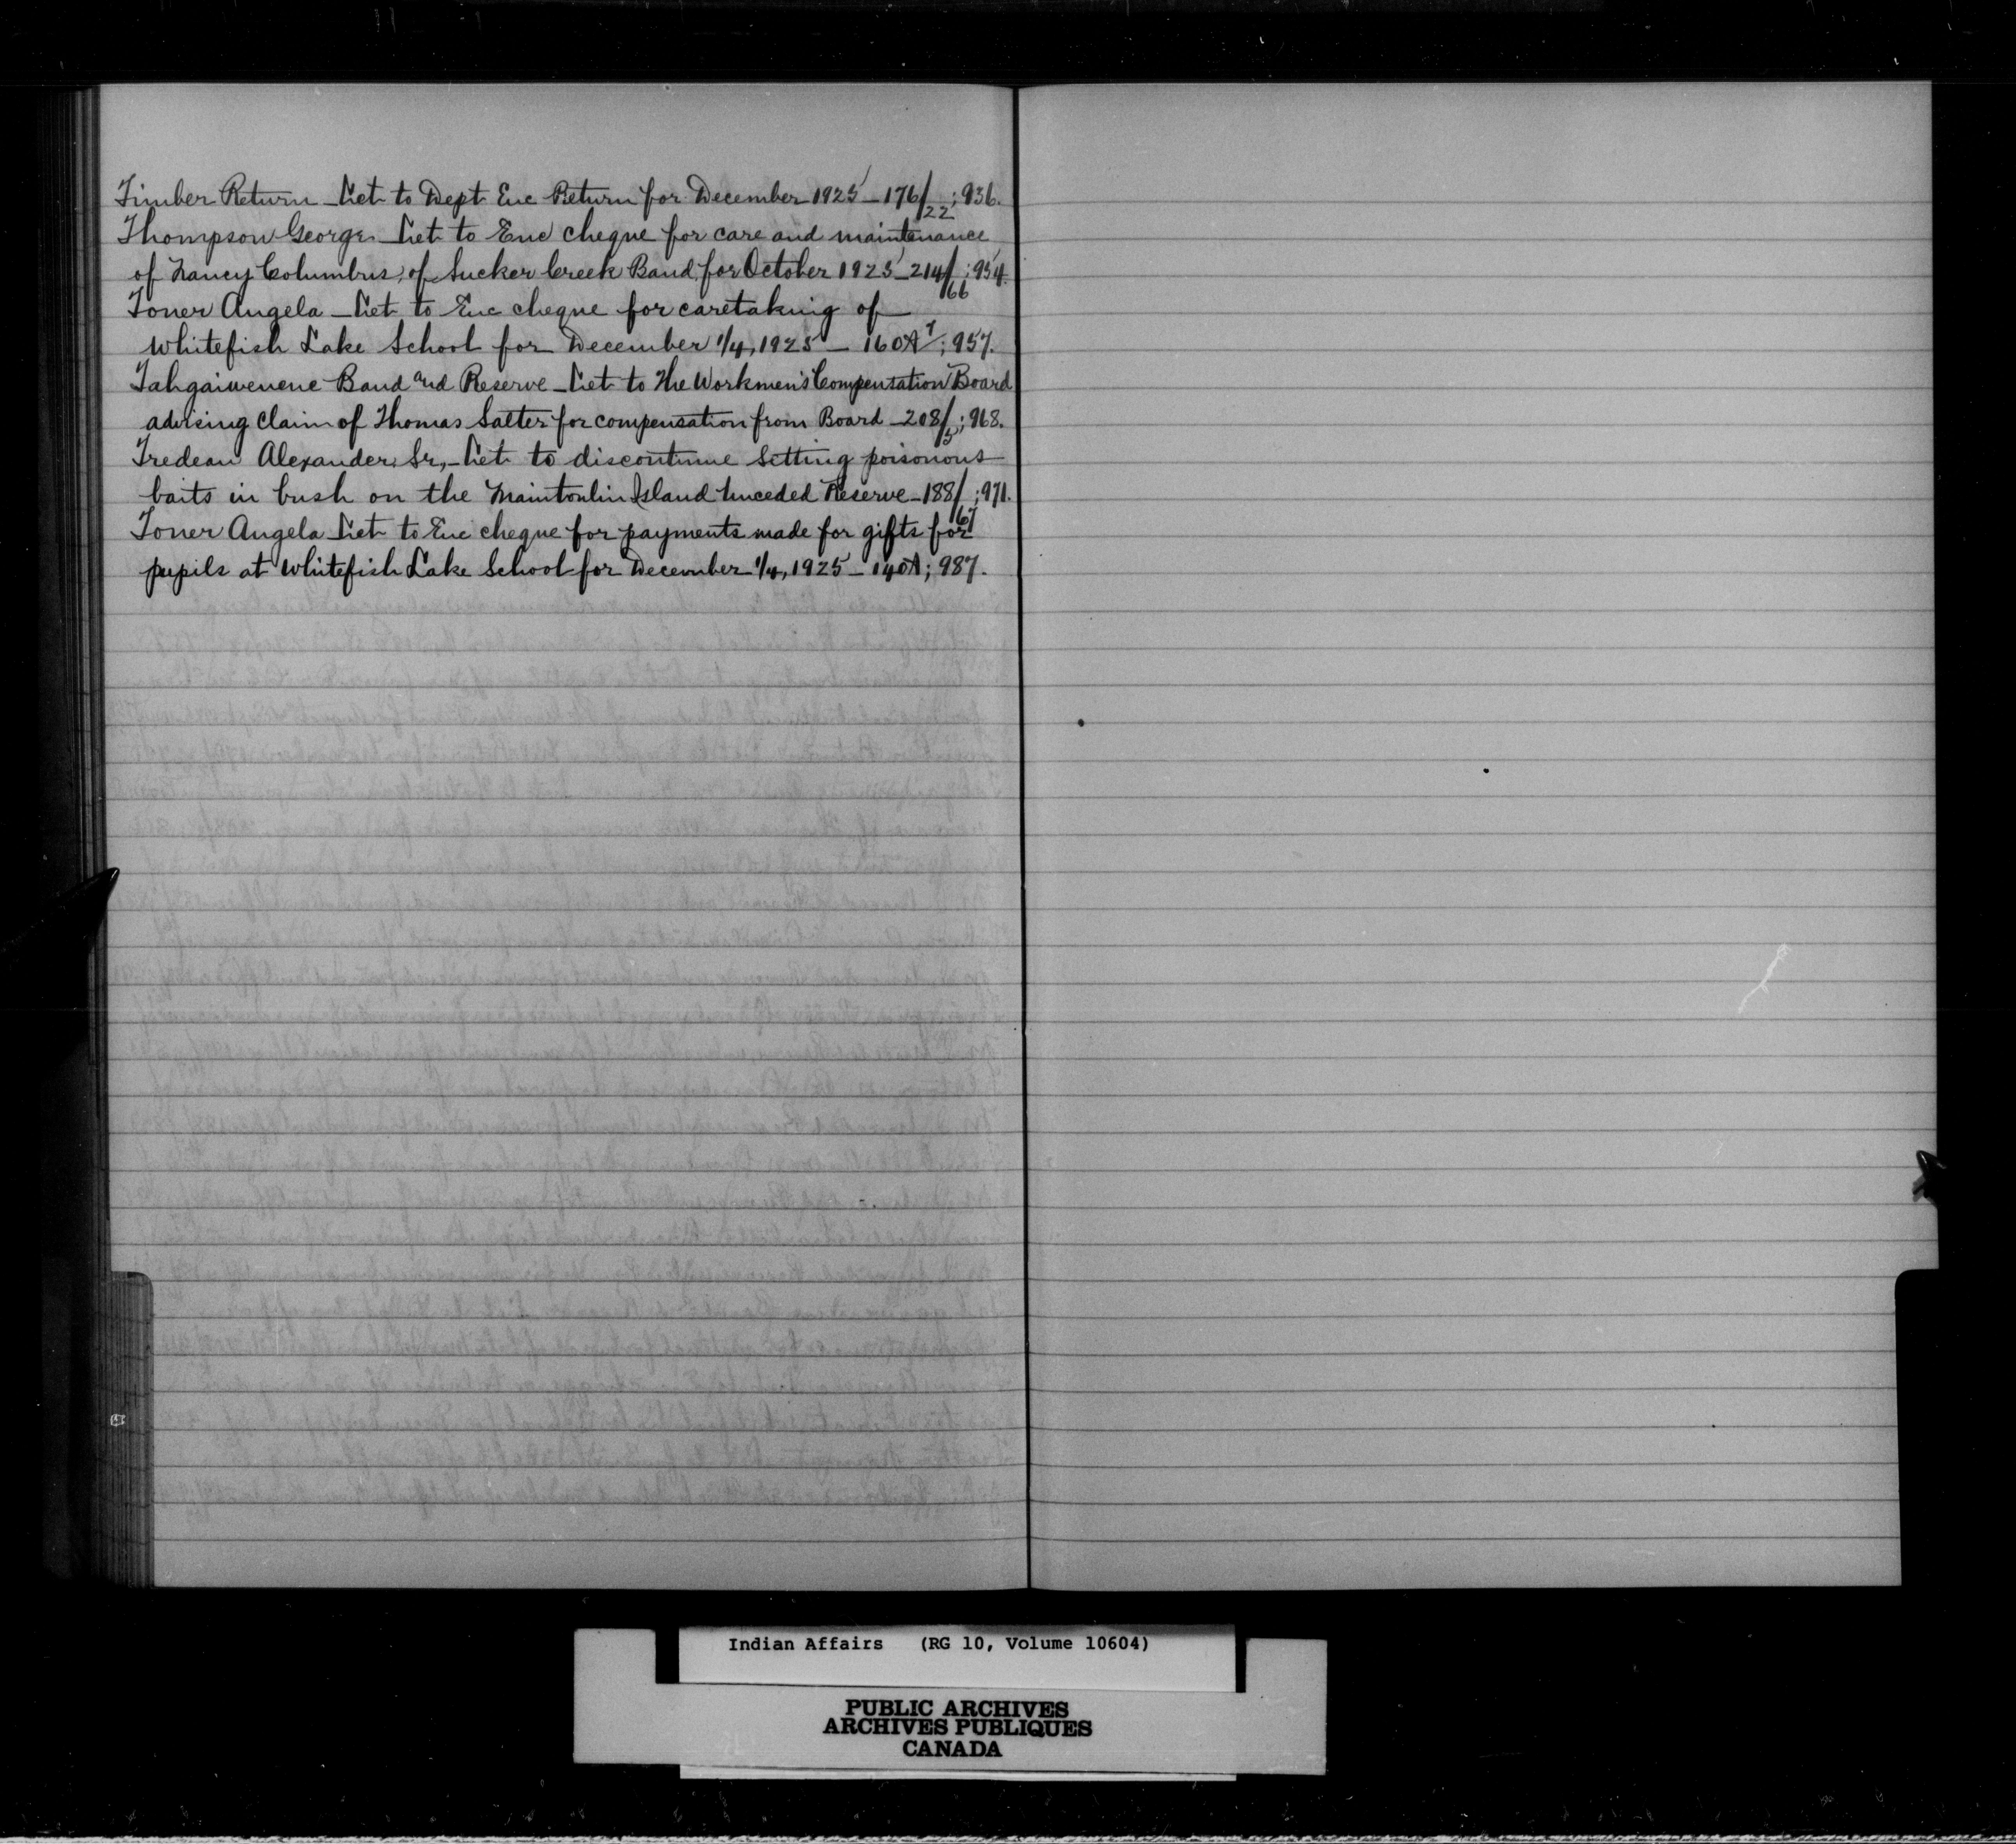 Timber Return - Let to Dept Enc Return for December 1925 - 176/22; 936.
Thompson George - Let to Enc cheque for care and maintenance
of Nancy Columbus, of Sucker Creek Band, for October 1925 - 214/66; 954.
Toner Angela - Let to Enc cheque for caretaking of
Whitefish Lake School for December 1/4, 1925 - 160A; 957.
Tahgaiwenene Band and Reserve - Let to The Workmen's Compensation Board
advising claim of Thomas Salter for compensation from Board - 208/5; 968.
Tredeau Alexander Sr., - Let to discontinue setting poisonous
baits in bush on the Maintoulin Island Unceded Reserve - 188/67; 971.
Toner Angela - Let to Enc cheque for payments made for gifts for
pupils at Whitefish Lake School for December 1/4, 1925 - 140A; 987.
Indian Affairs (RG 10, Volume 10604)
PUBLIC ARCHIVES
ARCHIVES PUBLIQUES
CANADA